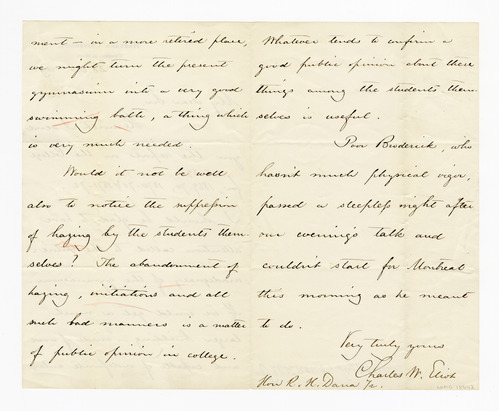 ment – in a more retired place,
we might turn the present
gymnasium into a very good
swimming bath, a thing which
is very much needed.
Would it not be well
also to notice the suppression
of hazing by the students them-
selves? The abandonment of
hazing, initiations and all
such bad manners is a matter
of public opinion in college.
Whatever tends to confirm a
good public opinion about these
things among the students them-
selves is useful.
Poor Broderick, who
hasn't much physical vigor,
passed a sleepless night after
our evening's talk and
couldn't start for Montreal
this morning as he meant
to do.
Very truly yours
Charles W. Eliot
Hon R. H. Dana Jr.